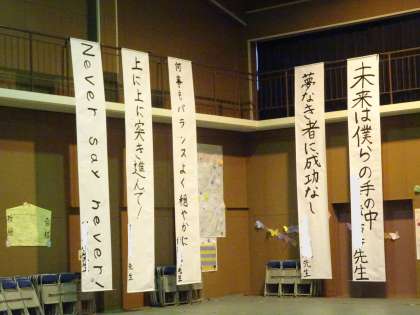 Never say never!
上に上に突き進んで！
先生
何事もバランスよく穏やかに
先生
夢なき者に成功なし
先生
未来は僕らの手の中
先生